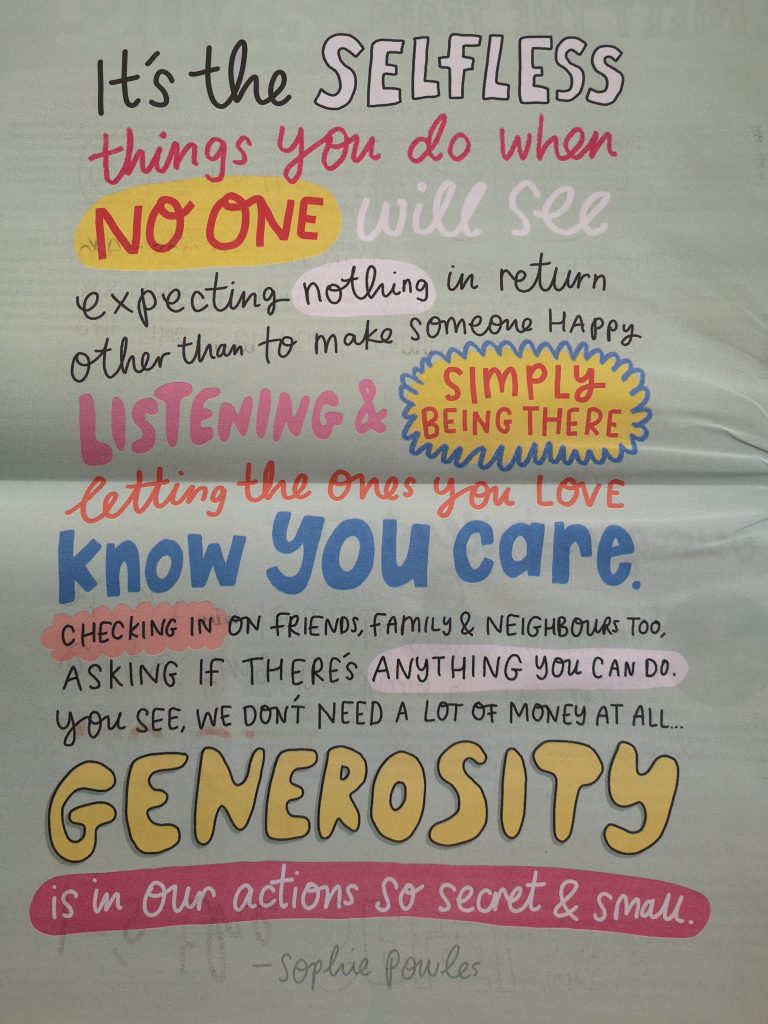 It's the SELFLESS
things you do when
NO ONE will see
expecting nothing in return
other than to make someone HAPPY
LISTENING & SIMPLY
BEING THERE
letting the ones you LOVE
know you care.
CHECKING IN ON FRIENDS, FAMILY & NEIGHBOURS TOO,
ASKING IF THERE'S ANYTHING YOU CAN DO.
YOU SEE, WE DON'T NEED A LOT OF MONEY AT ALL...
GENEROSITY
is in our actions so secret & small.
- Sophie Powles